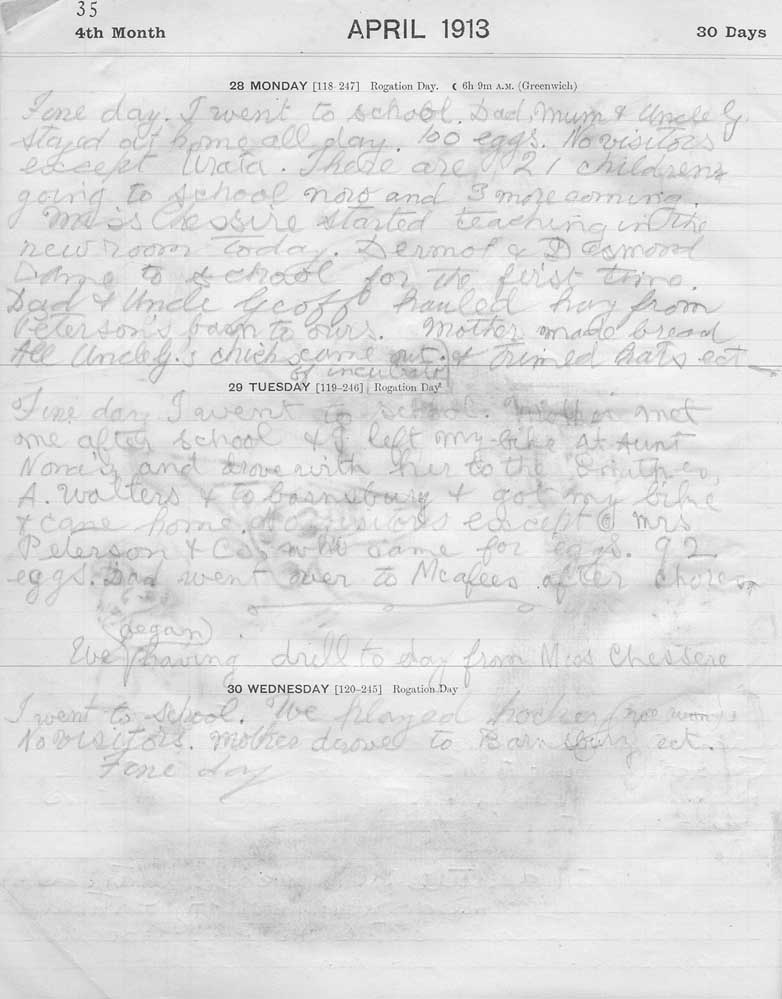 35
4th Month APRIL 1913 30 Days
28 MONDAY [118-247] Rogation Day. ☾ 6h 9m A.M. (Greenwich)
Fine day. I went to school. Dad, Mum & Uncle G.
stayed at home all day. 100 eggs. No visitors
except Urata. There are 21 children
going to school now and 3 more coming.
Miss Chessire started teaching in the
new room today. Dermot & Desmond
came to school for the first time.
Dad & Uncle Geoff hauled hay from
Peterson's barn to ours. Mother made bread
All Uncle G.'s chicks came out & trimed hats ect
of incubator
29 TUESDAY [119-246] Rogation Day
Fine day I went to school. Mother met
me after school & I left my bike at Aunt
and drove with her to the
A. Walters & to barnsbury & got my bike
& came home. No visitors except Mrs
Peterson & Co. who came for eggs. 92
eggs. Dad went over to Mcafees after chores
(began)
We having drill to day from Miss Chessere
30 WEDNESDAY [120-245] Rogation Day
I went to school. We played hockey (we won).
No visitors. Mother drove to Barnsbury ect.
Fine day